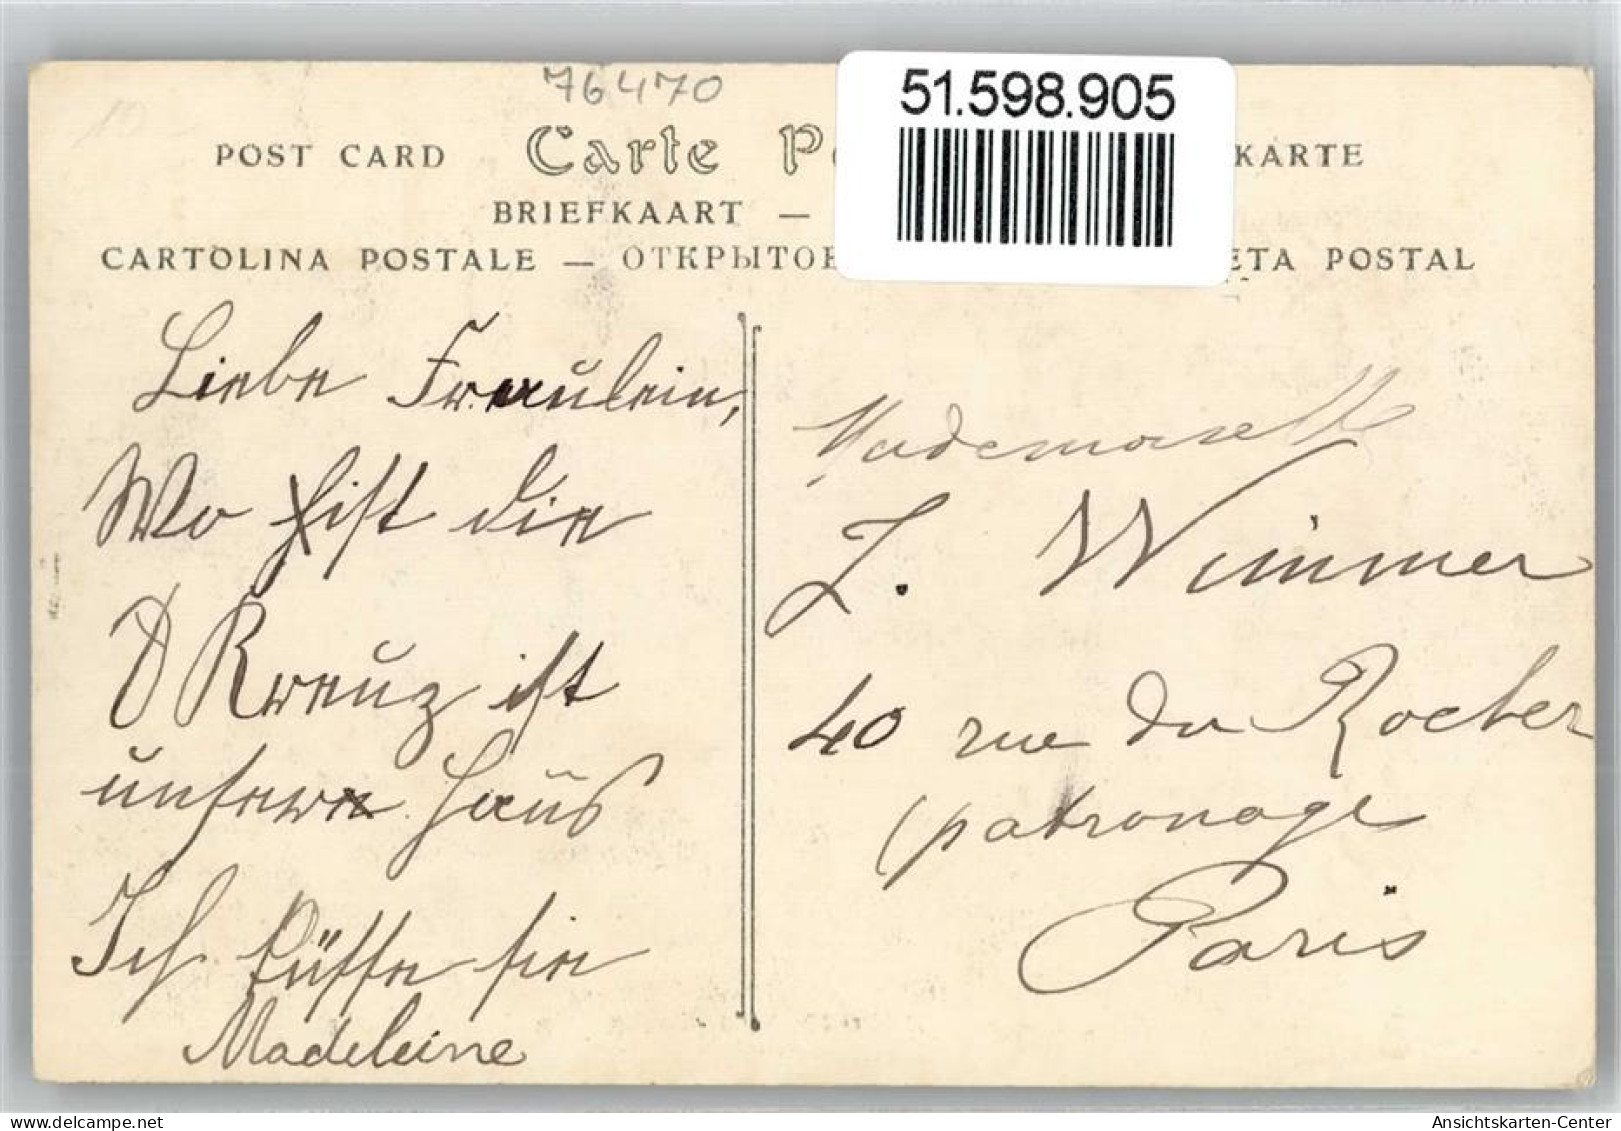 76470
51.598.905
POST CARD Carte P KARTE
BRIEFKAART —
CARTOLINA POSTALE — ОТКРЫТОЕ ETA POSTAL
Liebe Fraulein,
Wo ist die
Kreuz ist
unsere Haus
Ich küsse sie
Madeleine
Mademoiselle
L. Wimmer
40 rue du Rocher
(patronage
Paris
Ansichtskarten-Center